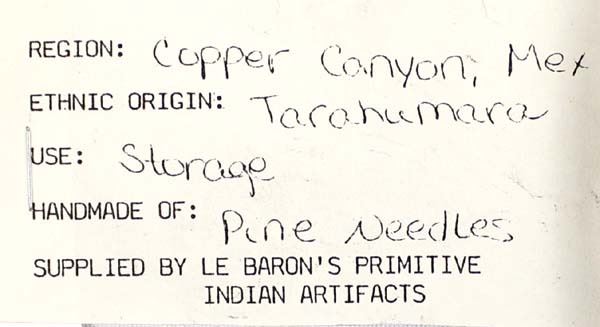 REGION: Copper Canyon, Mex
ETHNIC ORIGIN: Tarahumara
USE: Storage
HANDMADE OF: Pine Needles
SUPPLIED BY LE BARON'S PRIMITIVE
INDIAN ARTIFACTS